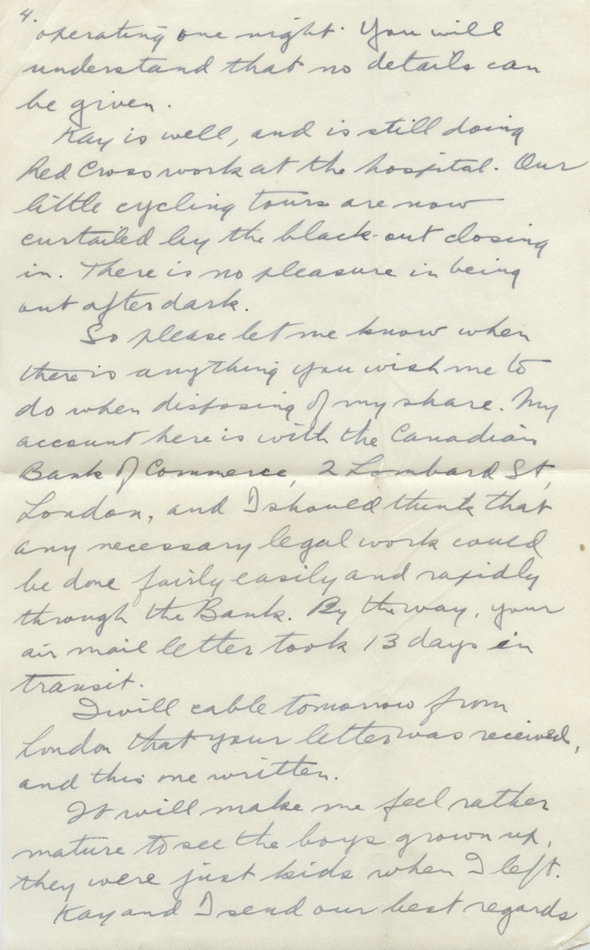 4.
operating one night. You will
understand that no details can
be given.
Kay is well, and is still doing
Red Cross work at the hospital. Our
little cycling tours are now
curtailed by the black-out closing
in. There is no pleasure in being
out after dark.
So please let me know when
there is anything you wish me to
do when disposing of my share. My
account here is with the Canadian
Bank of Commerce, 2 Lombard St,
London, and I should think that
any necessary legal work could
be done fairly easily and rapidly
through the Bank. By the way, your
air mail letter took 13 days in
transit.
I will cable tomorrow from
London that your letter was received,
and this one written.
It will make me feel rather
mature to see the boys grown up,
they were just kids when I left.
Kay and I send our best regards